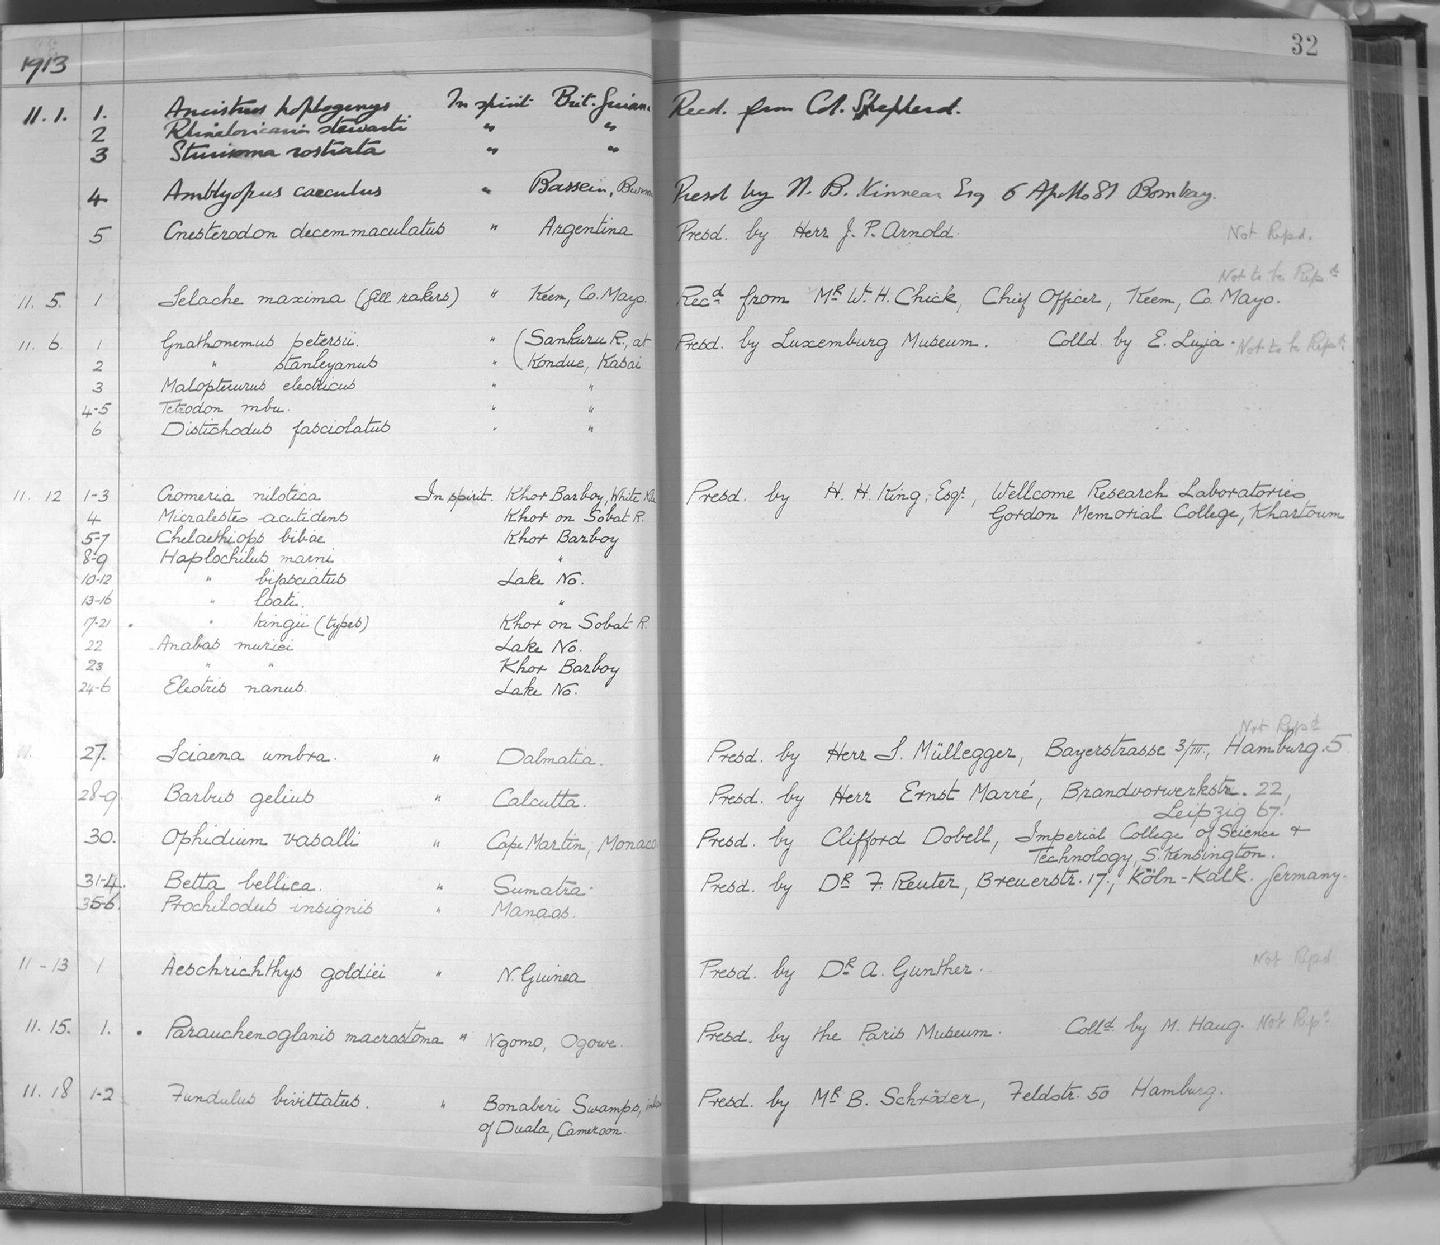 32
1913
11. 1. 1. Ancistrus hoplogenys In spirit Brit. Guian Recd. from Col. Shepherd.
2 Rhineloricaria stewarti " "
3 Sturisoma rostrata " "
4 Amblyopus caeculus " Bassein, Burm Presd by N. B. Kinnear Esq 6 Apollo St Bombay.
5 Cnesterodon decemmaculatus " Argentina Presd. by Herr J. P. Arnold. Not Repd.
Not to be Repd
11. 5. 1 Selache maxima (gill rakers) " Keem, Co. Mayo. Recd from Mr W. H. Chick, Chief Officer, Keem, Co. Mayo.
11. 6. 1 Gnathonemus petersii. " (Sankuru R., at Presd. by Luxemburg Museum. Colld. by E. Luja. Not to be Repd
2 " stanleyanus " Kondue, Kasai
3 Malopterurus electricus " "
4-5 Tetrodon mbu. " "
6 Distichodus fasciolatus " "
11. 12 1-3 Cromeria nilotica In spirit. Khor Barboy, White Nile Presd. by H. H. King, Esqr., Wellcome Research Laboratories,
4 Micralestes acutidens Khor on Sobat R. Gordon Memorial College, Khartoum
5-7 Chelaethiops bibae Khor Barboy
8-9 Haplochilus marni "
10-12 " bifasciatus Lake No.
13-16 " loati. "
17-21 . " kingii (types) Khor on Sobat R.
22 Anabas muriei Lake No.
23 " " Khor Barboy
24-6 Eleotris nanus. Lake No.
Not Repd
27. Sciaena umbra. " Dalmatia. Presd. by Herr S. Müllegger, Bayerstrasse 3/III., Hamburg. 5
28-9. Barbus gelius " Calcutta. Presd. by Herr Ernst Marré, Brandvorwerkstr. 22,
Leipzig 67.
30. Ophidium vasalli " Cape Martin, Monaco Presd. by Clifford Dobell, Imperial College of Science +
Technology, S. Kensington.
31-4. Betta bellica. " Sumatra. Presd. by Dr F. Reuter, Breuerstr. 17., Köln-Kalk. Germany.
35-6. Prochilodus insignis " Manaos.
11-13 1 Aeschrichthys goldiei " N. Guinea Presd. by Dr A. Gunther. Not Repd
11. 15. 1. . Parauchenoglanis macrostoma " Ngomo, Ogowe. Presd. by the Paris Museum. Colld by M. Haug. Not Repd
11. 18 1-2 Fundulus bivittatus. " Bonaberi Swamps, Presd. by Mr B. Schröder, Feldstr. 50 Hamburg.
of Duala, Cameroon.